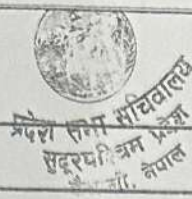 प्रदेश सभा सचिवालय
सुदूरपश्चिम प्रदेश
नेपाल